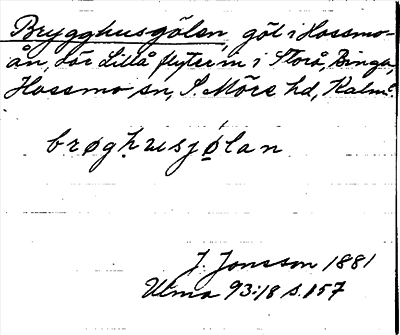 Brygghusgölen, göl i Hossmo-
ån, där Lillå flyter in i Storå, Binga,
Hossmo sn, S. Möre hd, Kalm.
brøghusjølan
J. Jonsson 1881
Ulma 93:18 s. 157